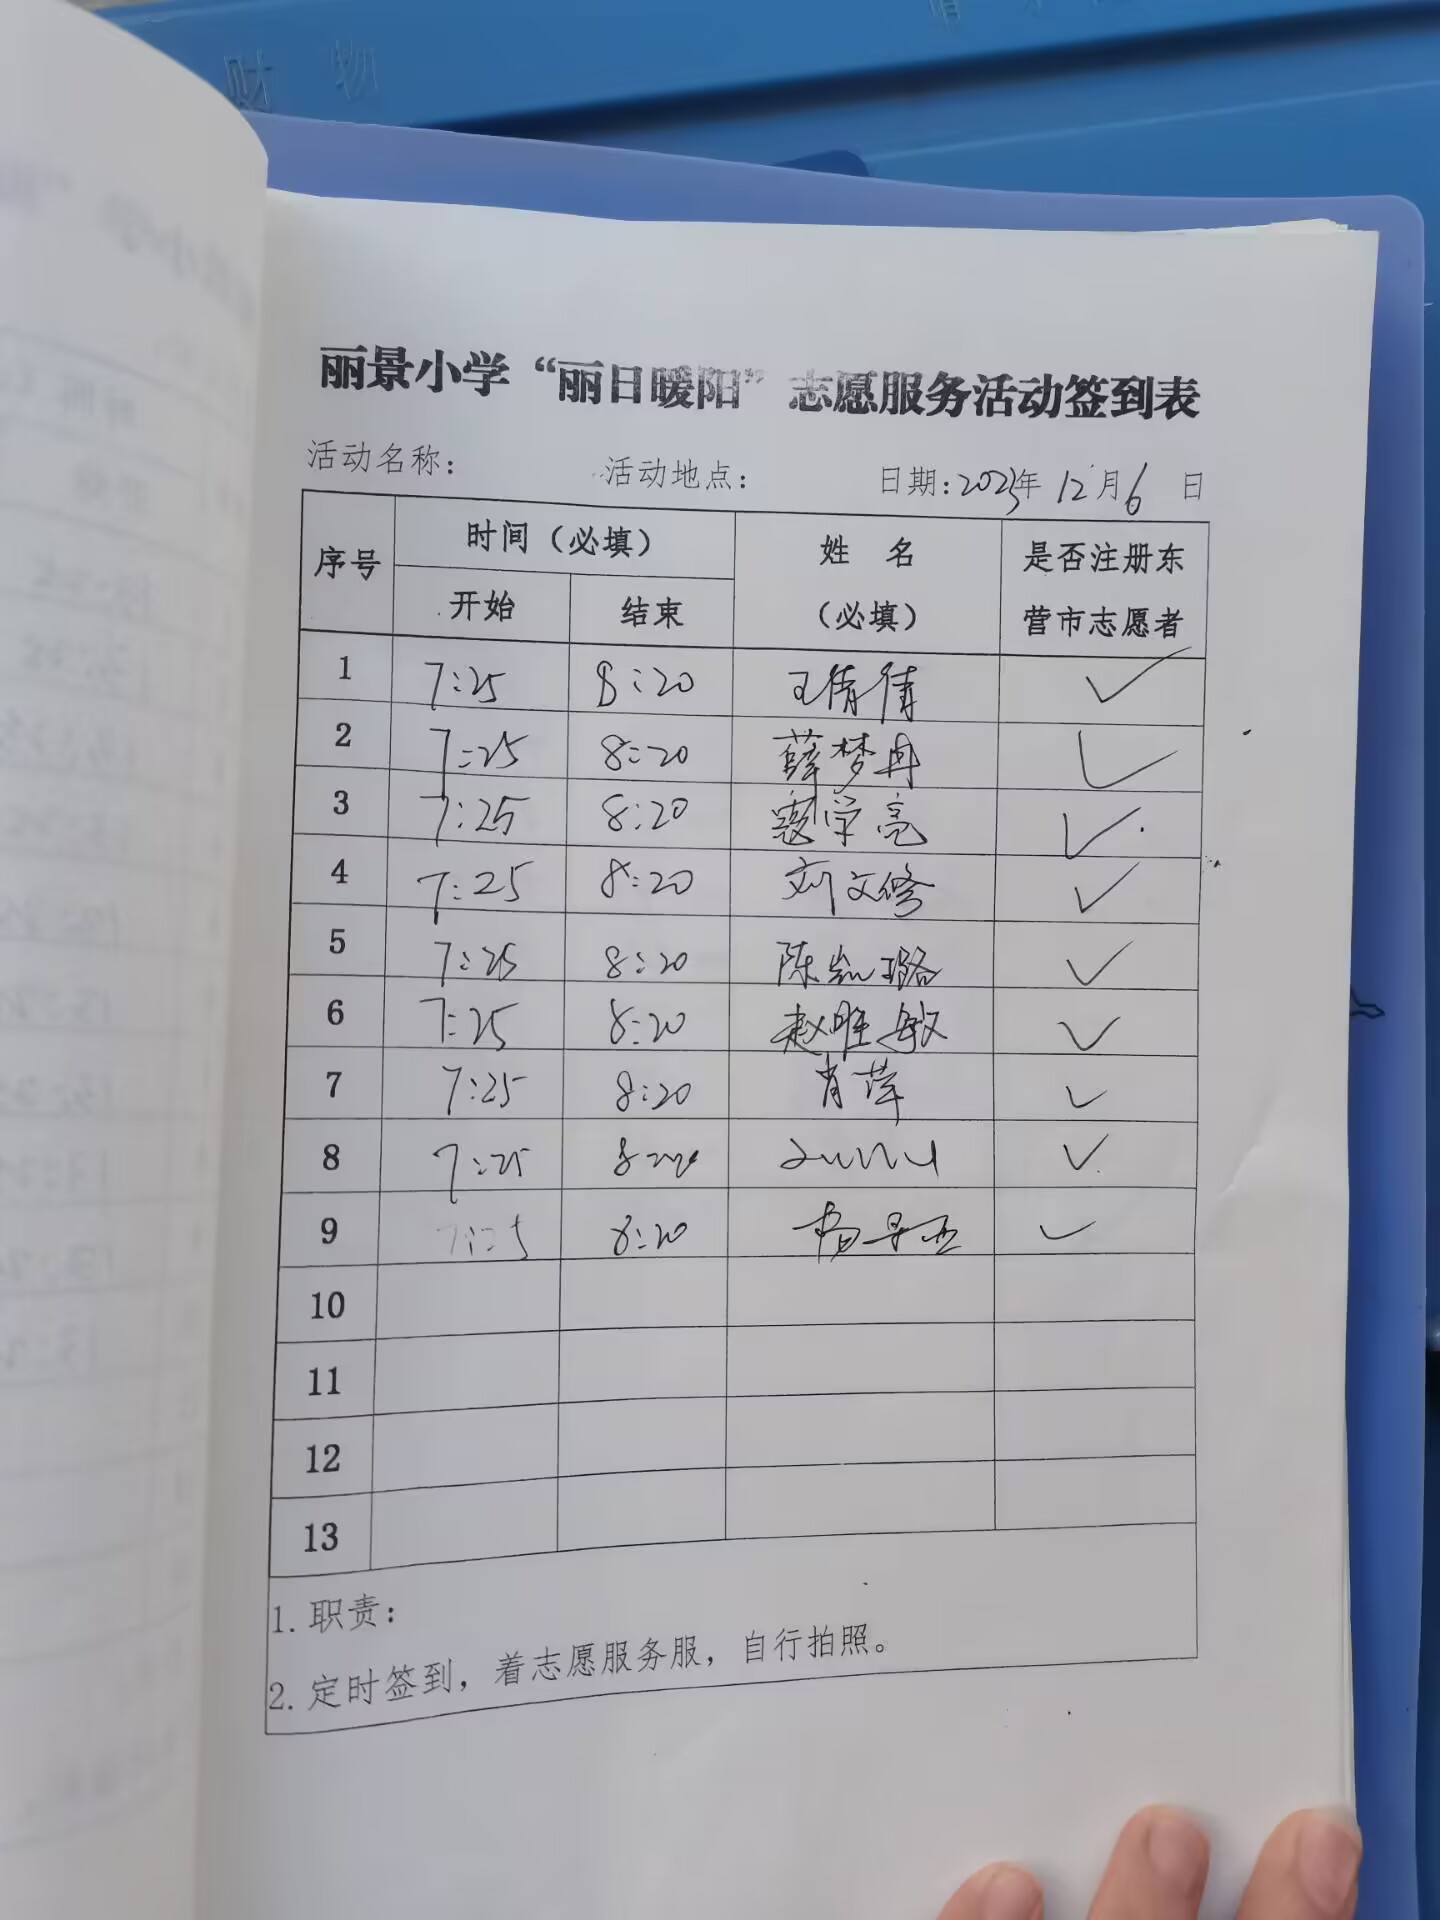 财 物
丽景小学“丽日暖阳”志愿服务活动签到表
活动名称: 活动地点: 日期:2023年12月6日
序号 时间（必填） 姓 名（必填） 是否注册东营市志愿者
开始 结束
1 7:25 8:20 王倩倩 ✓
2 7:25 8:20 薛梦冉 ✓
3 7:25 8:20 寇学亮 ✓
4 7:25 8:20 刘文修 ✓
5 7:25 8:20 陈凯璐 ✓
6 7:25 8:20 赵唯敏 ✓
7 7:25 8:20 肖萍 ✓
8 7:25 8:20 ✓
9 7:25 8:20 ✓
10
11
12
13
1.职责:
2.定时签到，着志愿服务服，自行拍照。